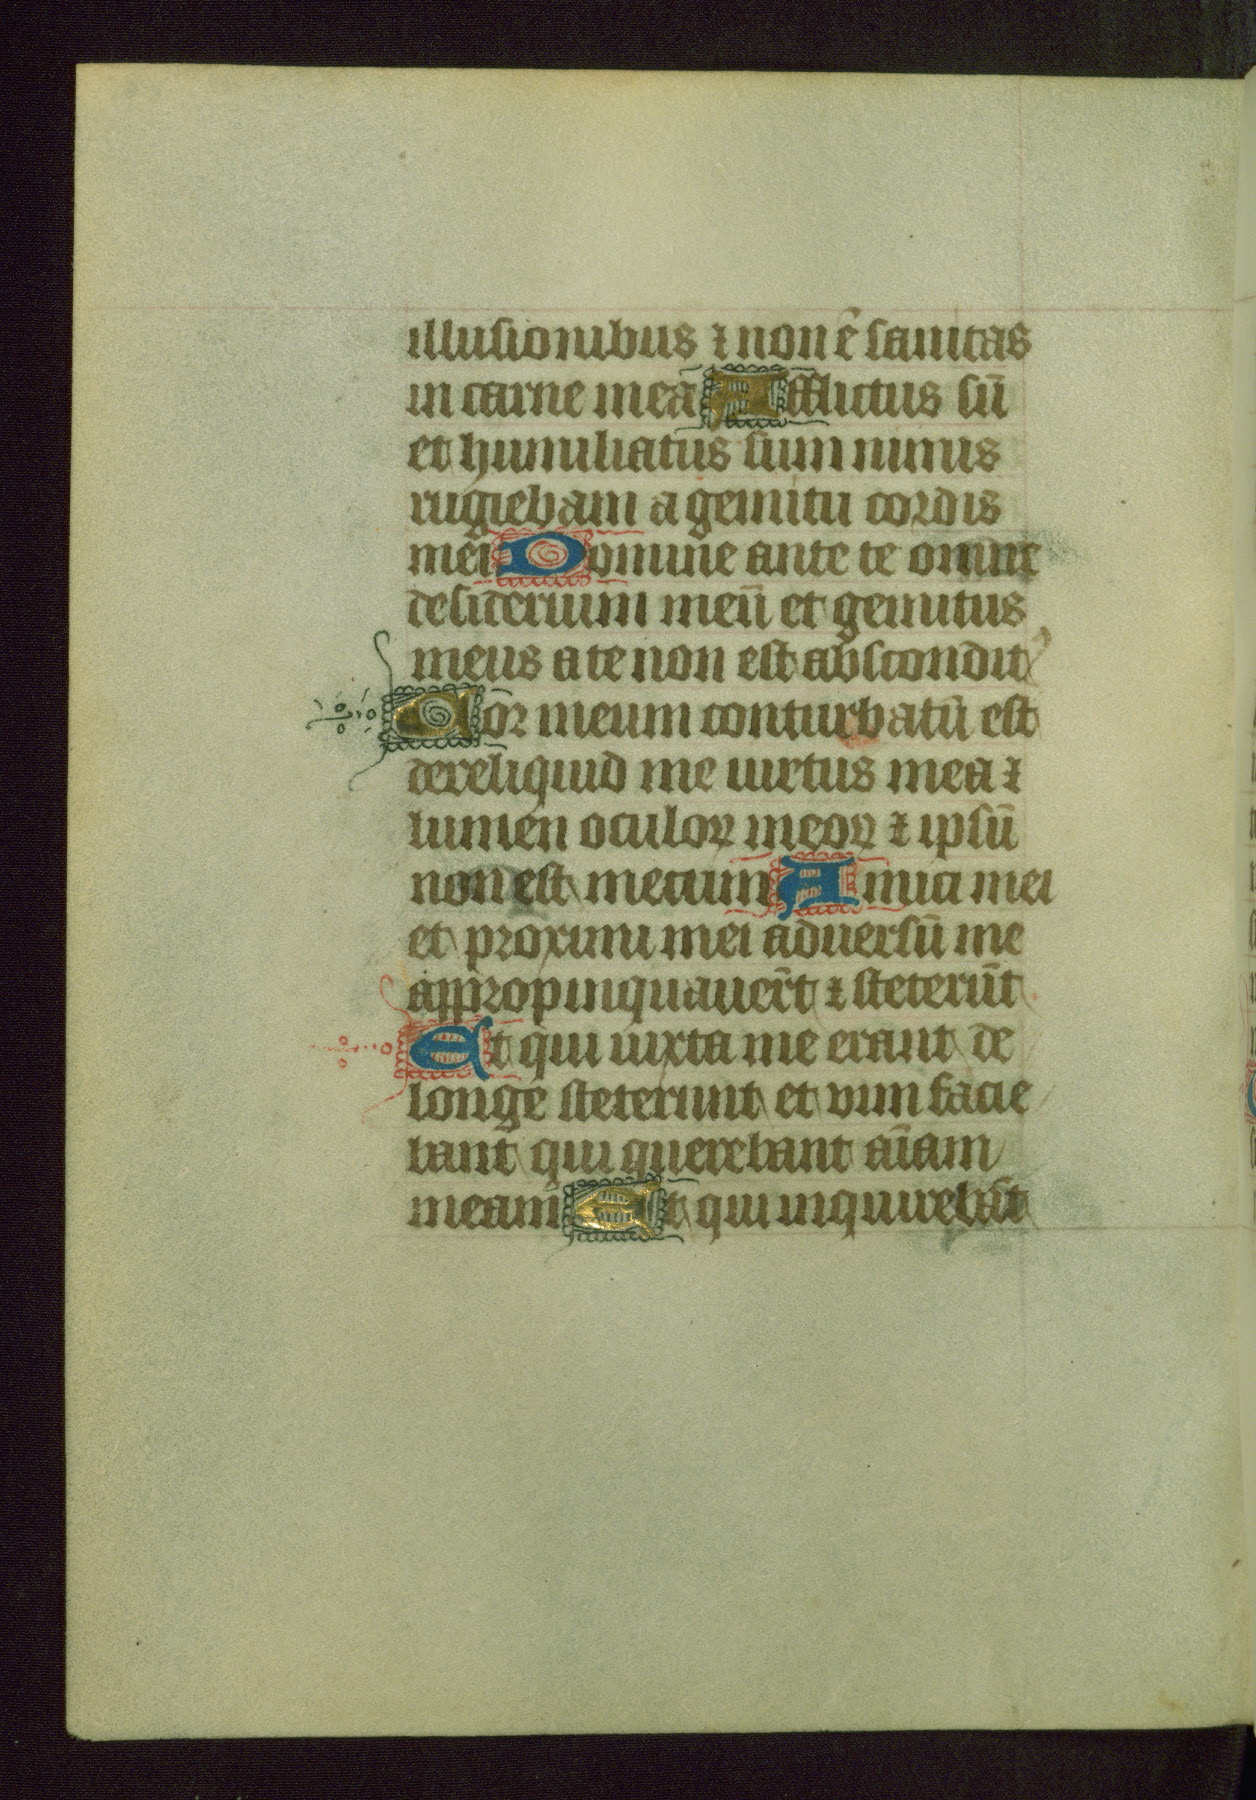 illusionibus ⁊ non ē sanitas
in carne mea Afflictus sū
et humiliatus sum nimis
rugiebam a gemitu cordis
mei Domine ante te omne
desiderium meū et gemitus
meus a te non est abscondit⁹
Cor meum conturbatū est
dereliquid me uirtus mea ⁊
lumen oculoꝝ meoꝝ ⁊ ipsū
non est mecum Amici mei
et proximi mei aduersū me
appropinquauer̄t ⁊ steterūt
Et qui iuxta me erant de
longe steterunt et uim facie
bant qui querebant aīam
meam Et qui inquirebāt